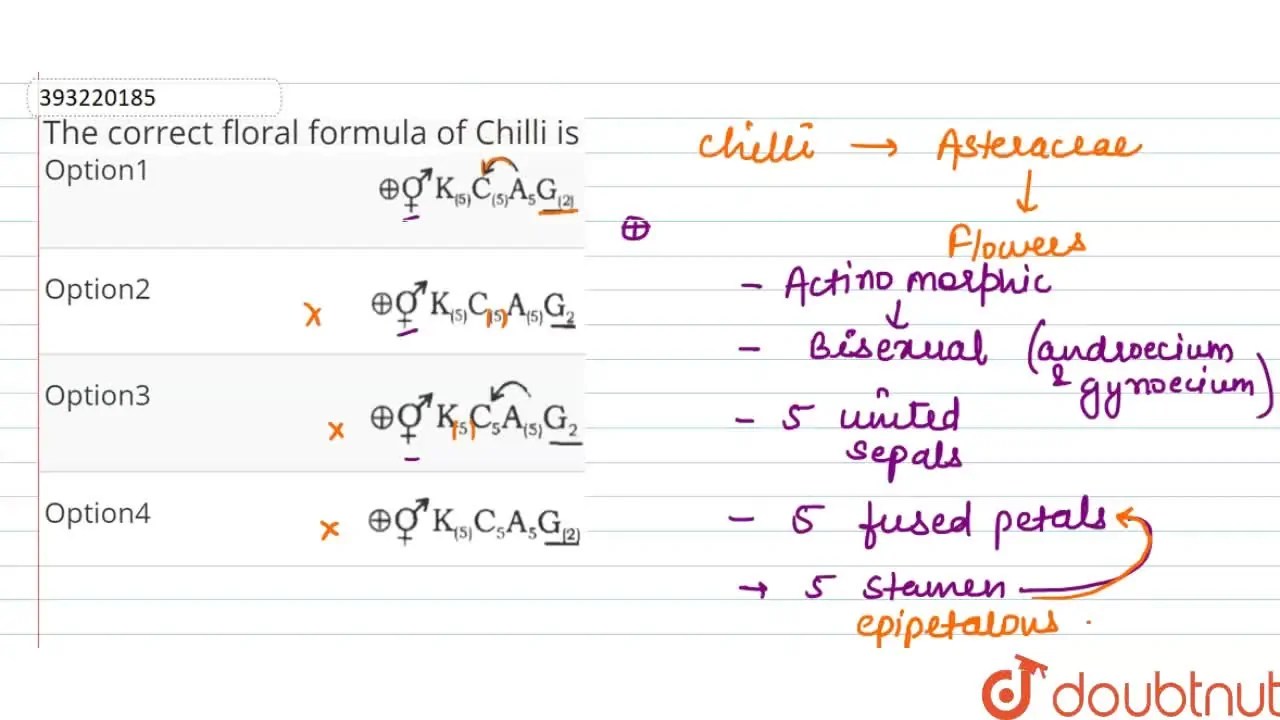 393220185
The correct floral formula of Chilli is
Option1
⊕⚥K₍₅₎C₍₅₎A₅G₍₂₎
Option2
x ⊕⚥K₍₅₎C₍₅₎A₍₅₎G₂
Option3
x ⊕⚥K₍₅₎C₅A₍₅₎G₂
Option4
x ⊕⚥K₍₅₎C₅A₅G₍₂₎
Chilli → Asteraceae
↓
⊕
Flowers
- Actinomorphic
↓
- Bisexual (androecium & gynoecium)
- 5 united
sepals
- 5 fused petals
→ 5 stamen
epipetalous
doubtnut